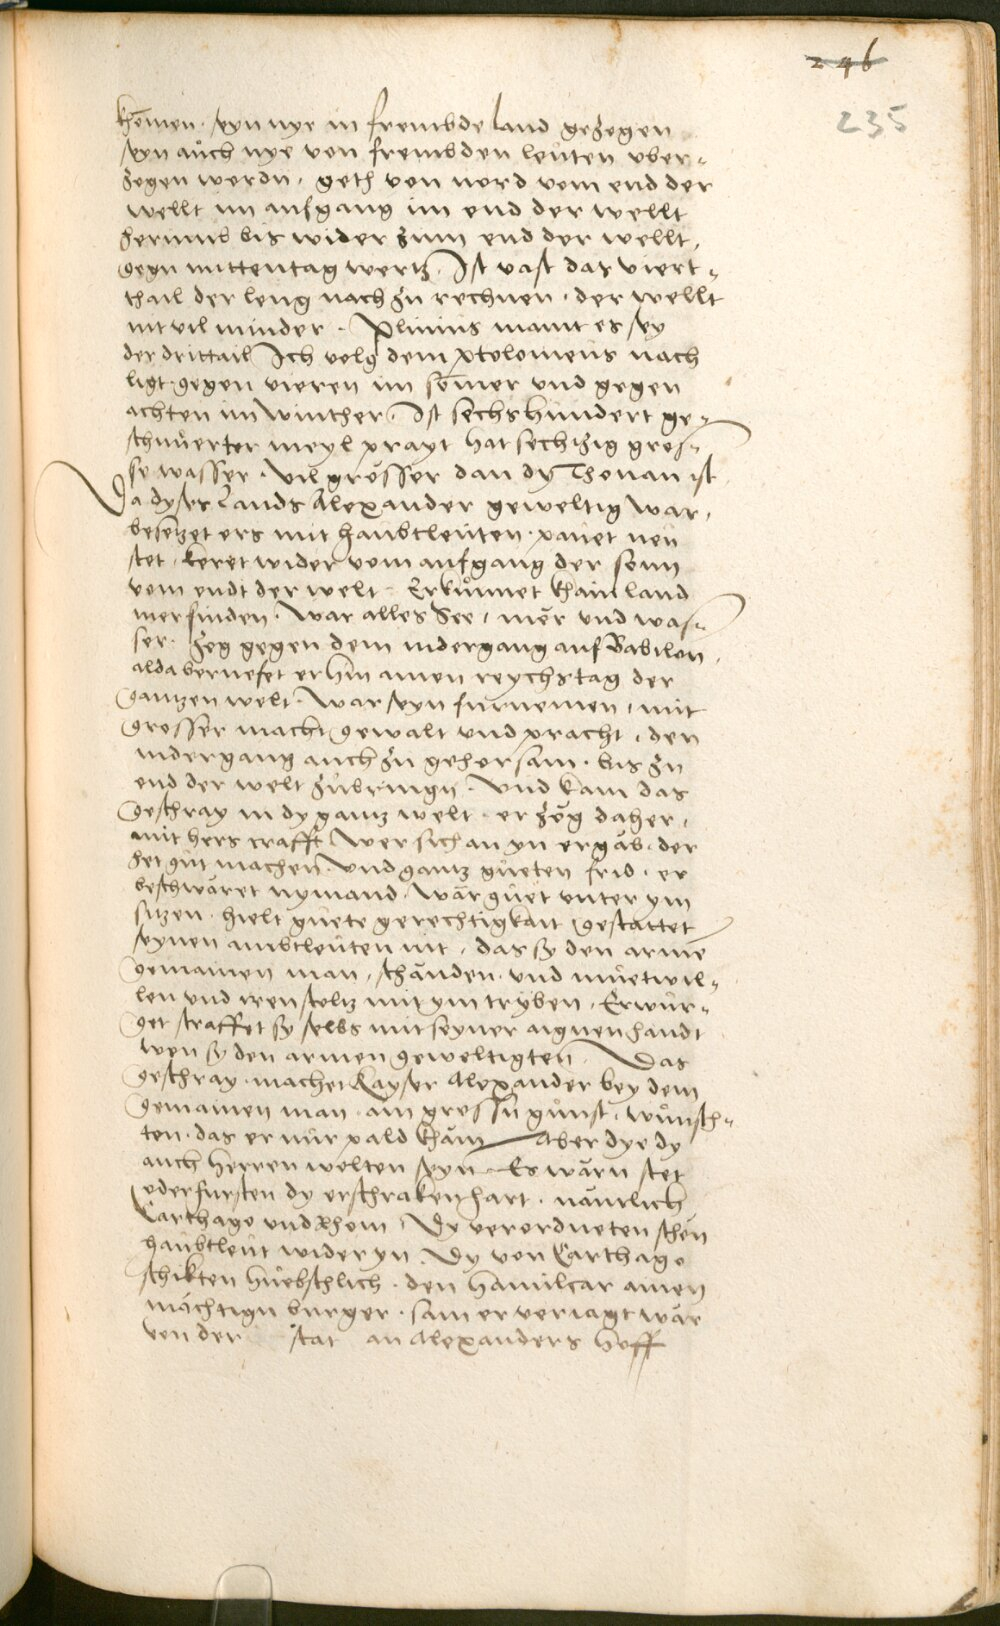 246
235
khömen · seyn nye in frembde land gezogen
seyn auch nye von frembden leuten vber-
zogen werdn, geth von nord vom end der
wellt im aufgang im end der wellt
herumb bis wider zum end der wellt,
gegn mittentag wertz. Ist vast das viert-
thail der leng nach zu rechnen, der wellt
nit vil minder. Plinius maint es sey
der drittail Ich volg dem ptolomeus nach
ligt gegen vieren im somer vnd gegen
achten im winther. Ist sechs hundert ge-
schnuerter meyl prayt hat sechtzig gros-
se wasser. vil grösser dan dy Thonau ist
Da dyses Lands Alexander geweltig war,
besetzet ers mit haubtleuten, pauet neu
stet, keret wider vom aufgang der sonn
vom endt der welt. Erkunnet khain land
mer finden. war alles See, mör vnd was-
ser. Zog gegen dem nidergang auf Babilon,
alda beruefet er hin ainen reychstag der
gantzen welt. war seyn furnemen, mit
grosser macht gewalt vnd pracht, den
nidergang auch zu gehorsam. bis zu
end der welt zubringn. Vnd kam das
geschray in dy gantz welt. er zög daher,
mit hörs crafft. wer sich an yn ergäb. der
het gut machen. Vnd gantz gueten frid. er
beschwäret nymand. wär guet vnter ym
sitzen. hielt guete gerechtigkait gestattet
seynen ambtleuten nit, das sy den arme
gemainen man, schänden vnd muetwil-
len vnd iren stoltz mit ym tryben, Erwür-
get straffet sy selbs mit seyner aignen handt
wen sy den armen geweltigten. Das
geschray machet Kayser Alexander bey dem
gemainen man ain grossn gunst. wunsch-
ten. das er nur pald kham Aber dye dy
auch herren wolten seyn. Es wärn stet
oder fursten dy erschraken hart. näntlich
Carthago vnd Rhom, Dy verordneten schon
haubtleut wider yn. Dy von Carthago
schikten huebschlich. den Hamilcar ainen
mächtign burger. sam er veriagt wär
von der stat an Alexanders hoff